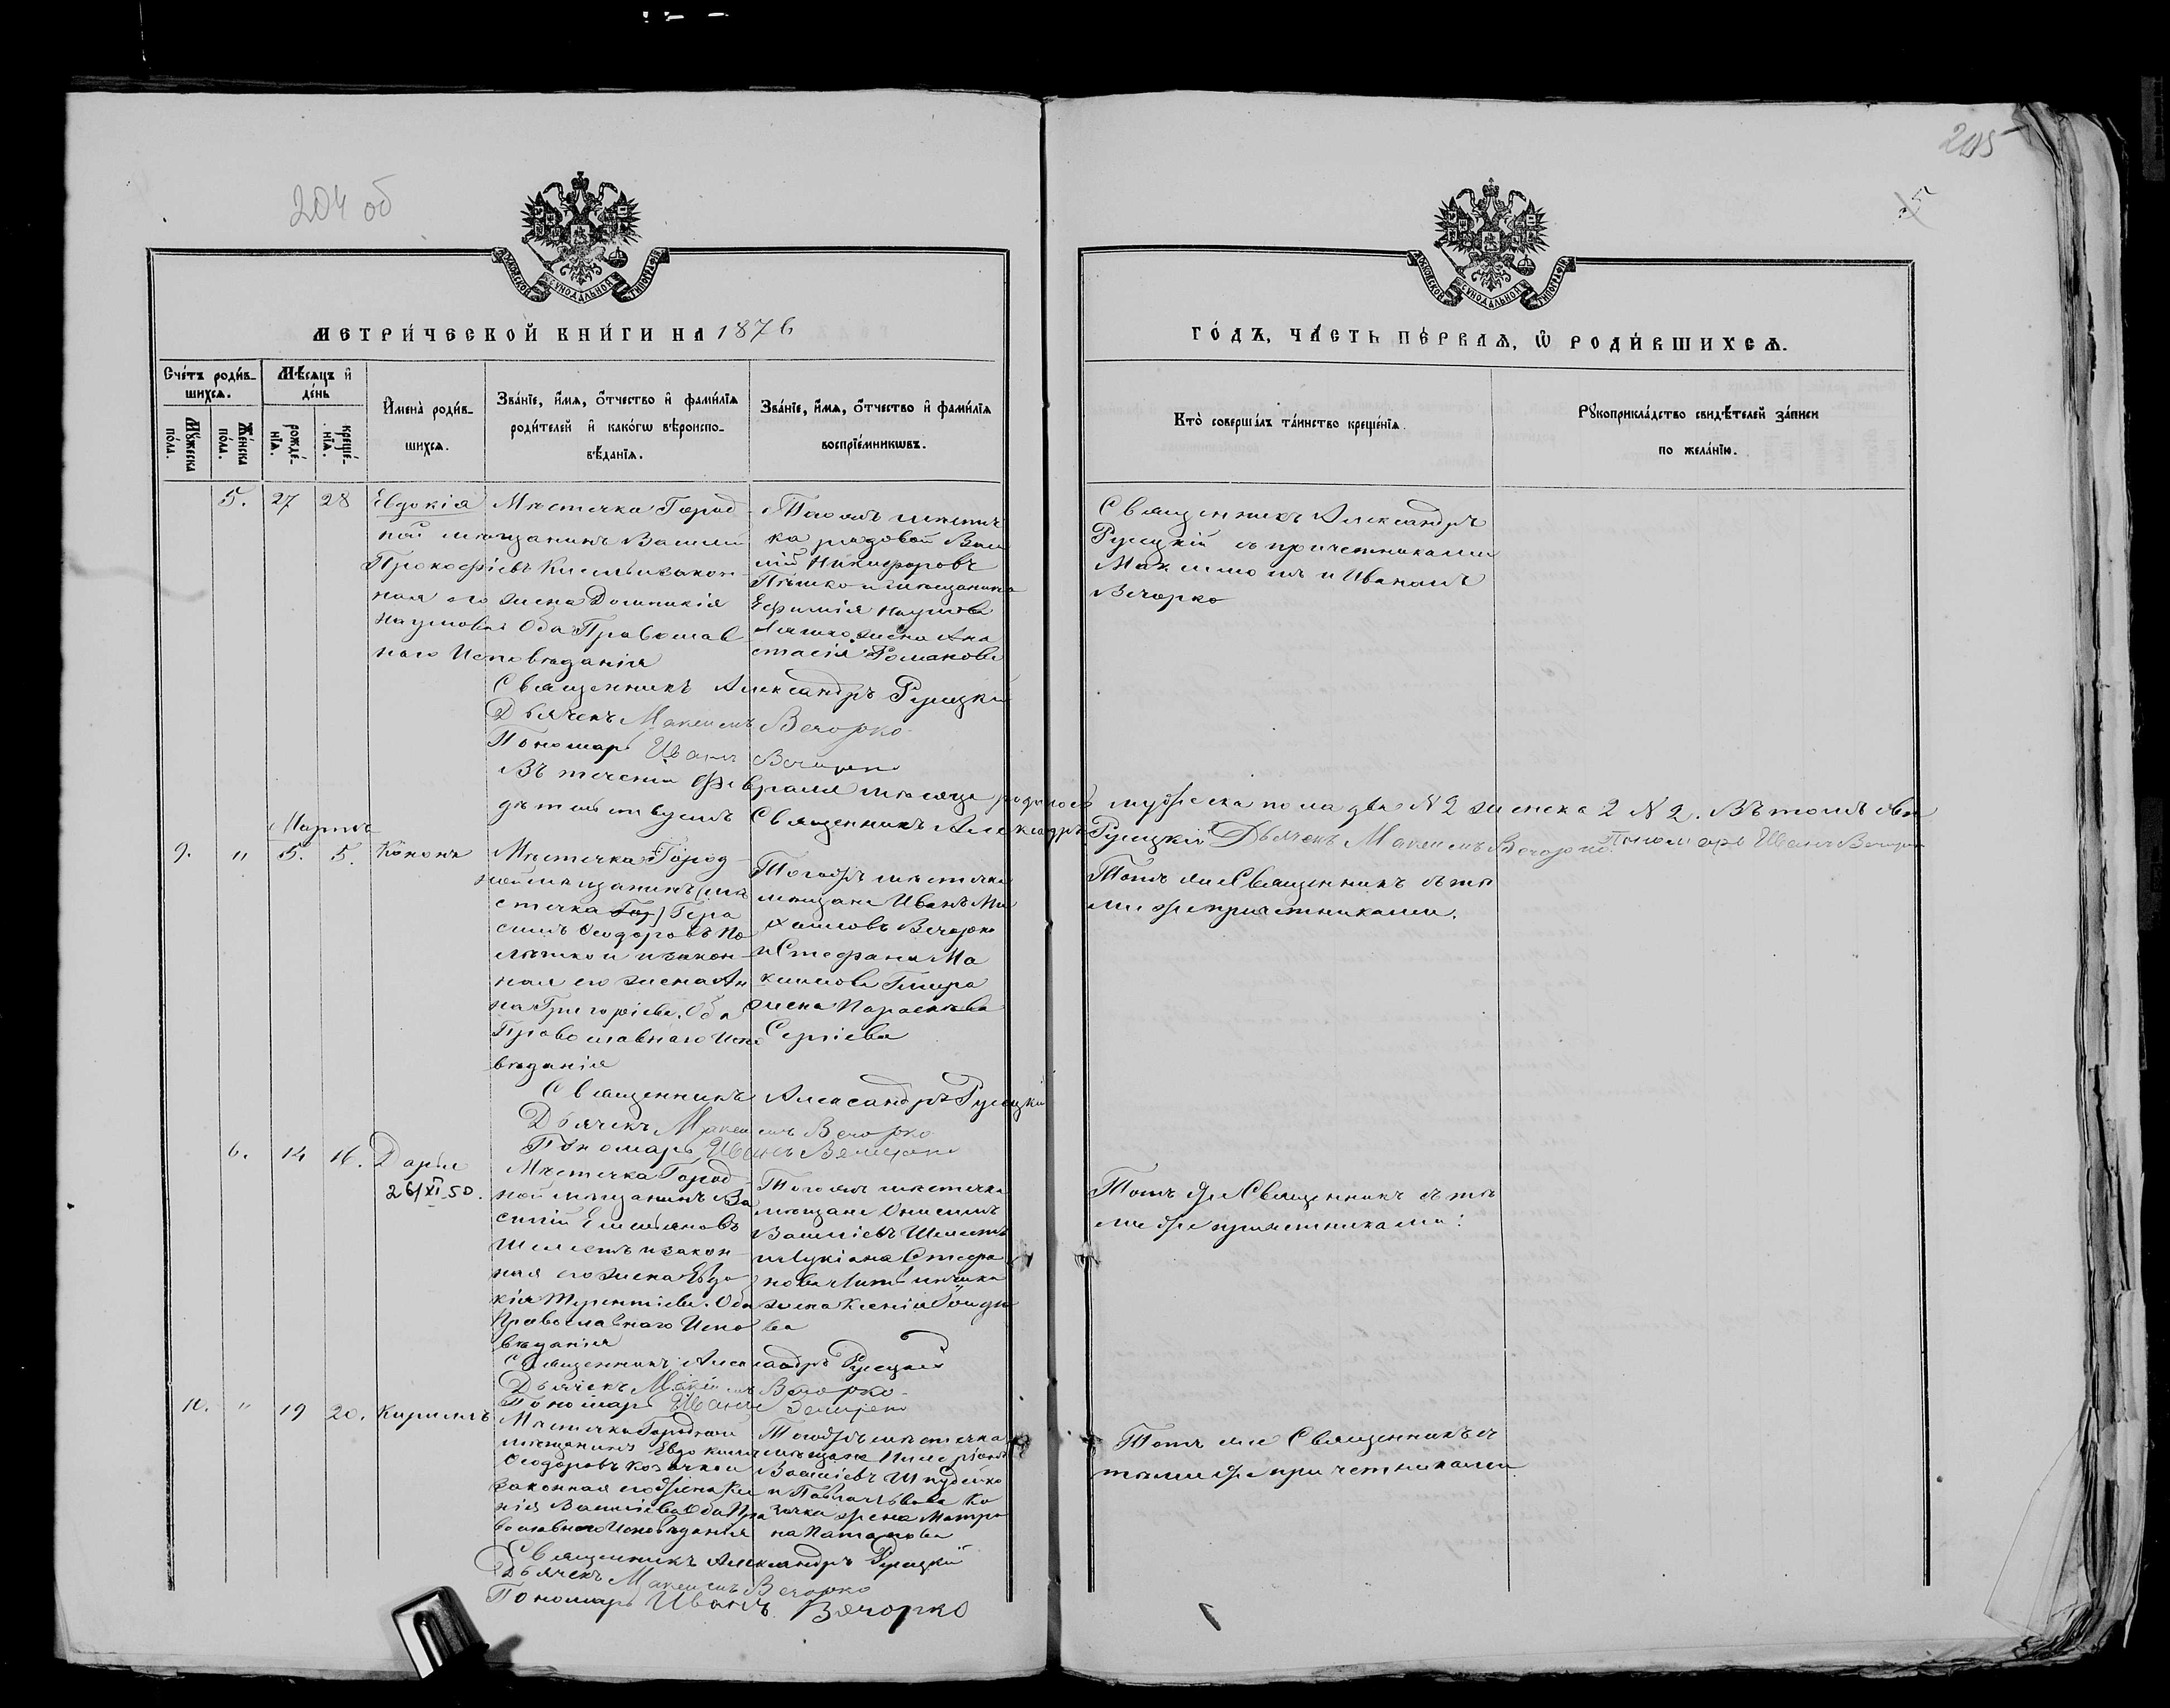 204 об
205
5
МОСКОВСКОЙ СѴНОДАЛЬНОЙ ТИПОГРАФІИ
МОСКОВСКОЙ СѴНОДАЛЬНОЙ ТИПОГРАФІИ
МЕТРИ́ЧЕСКОЙ КНИ́ГИ НА 1876
ГО́ДЪ, ЧА́СТЬ ПЕ́РВАѦ, Ѡ РОДИ́ВШИХСѦ.
Сче́тъ роди́в-
шихсѧ.
Мѣ́сѧцъ и
де́нь
Мꙋ́жеска по́ла.
Же́нска по́ла.
рожде́-
нїѧ.
креще́-
нїѧ.
Имена̀ роди́в-
шихсѧ.
Зва́нїе, и́мѧ, о́тчество и фами́лїѧ
роди́телей и како́гѡ вѣроиспо-
вѣ́данїѧ.
Зва́нїе, и́мѧ, о́тчество и фами́лїѧ
воспрїе́мникѡвъ.
Кто̀ соверша́лъ та́инство креще́нїѧ.
Рꙋкоприкла́дство свидѣ́телей за́писи
по жела́нїю.
5. 27 28 Евдокія
Мѣстечка Город
ной мѣщанинъ Василій
Прокофіевъ и закон-
ная его жена Домникія
Наумова Оба Православ
наго Исповѣданія
Тогожъ мѣстеч
ка рядовой Васи
лій Никифоровъ
и мѣщанина
Ефимія Наумова
жена Ана
стасія Романова
Священникъ Александръ
Рулецкій съ причетниками
Максимомъ и Иваномъ
Вечорко
Священникъ Александръ Рулецкій
Дьячекъ Максимъ Вечорко
Пономарь Иванъ Вечорко
Въ теченіи Февраля мѣсяца родилось мужеска пола два №2 женска 2 №2. Въ томъ сви
дѣтельствуемъ Священникъ Александръ Рулецкій Дьячекъ Максимъ Вечорко Пономарь Иванъ Вечорко
Мартъ
9. " 5. 5. Кононъ
Мѣстечка Город-
ной мѣщанинъ (мѣ
стечка Гор) Гера
симъ Ѳеодоровъ По
и закон-
ная его жена Ан
на Григоріева. Оба
Православнаго Испо
вѣданія
Тогожъ мѣстечка
мѣщане Иванъ Ми
хаиловъ Вечорко
и Стефана Ма
ксимова
жена Параскева
Сергіева
Тотъ же Священникъ съ тѣ
ми же причетниками.
Священникъ Александръ Рулецкій
Дьячекъ Максимъ Вечорко
Пономарь Иванъ Вечорко
6. 14 16. Дарія
26/XI 50.
Мѣстечка Город-
ной мѣщанинъ Ва
силій Емельяновъ
Шелестъ и закон-
ная его жена Евдо
кія Терентіева. Оба
Православнаго Испо
вѣданія
Тогожъ мѣстечка
мѣщане Онисимъ
Василіевъ Шелестъ
и Лукіана Стефа
нова
жена Ксенія
ва
Тотъ же Священникъ съ тѣ
ми же причетниками:
Священникъ Александръ Рулецкій
Дьячекъ Максимъ Вечорко
Пономарь Иванъ Вечорко
10. " 19 20. Кириллъ
Мѣстечка Городной
мѣщанинъ Евдокимъ
Ѳеодоровъ Козачка и
законная его жена Ксе
нія Василіева Оба Пра
вославнаго Исповѣданія
Тогожъ мѣстечка
мѣщане
Василіевъ
и Павла Львова Ко
зачка жена Матро
на Потапова
Тотъ же Священникъ съ
тѣми же причетниками.
Священникъ Александръ Рулецкій
Дьячекъ Максимъ Вечорко
Пономарь Иванъ Вечорко